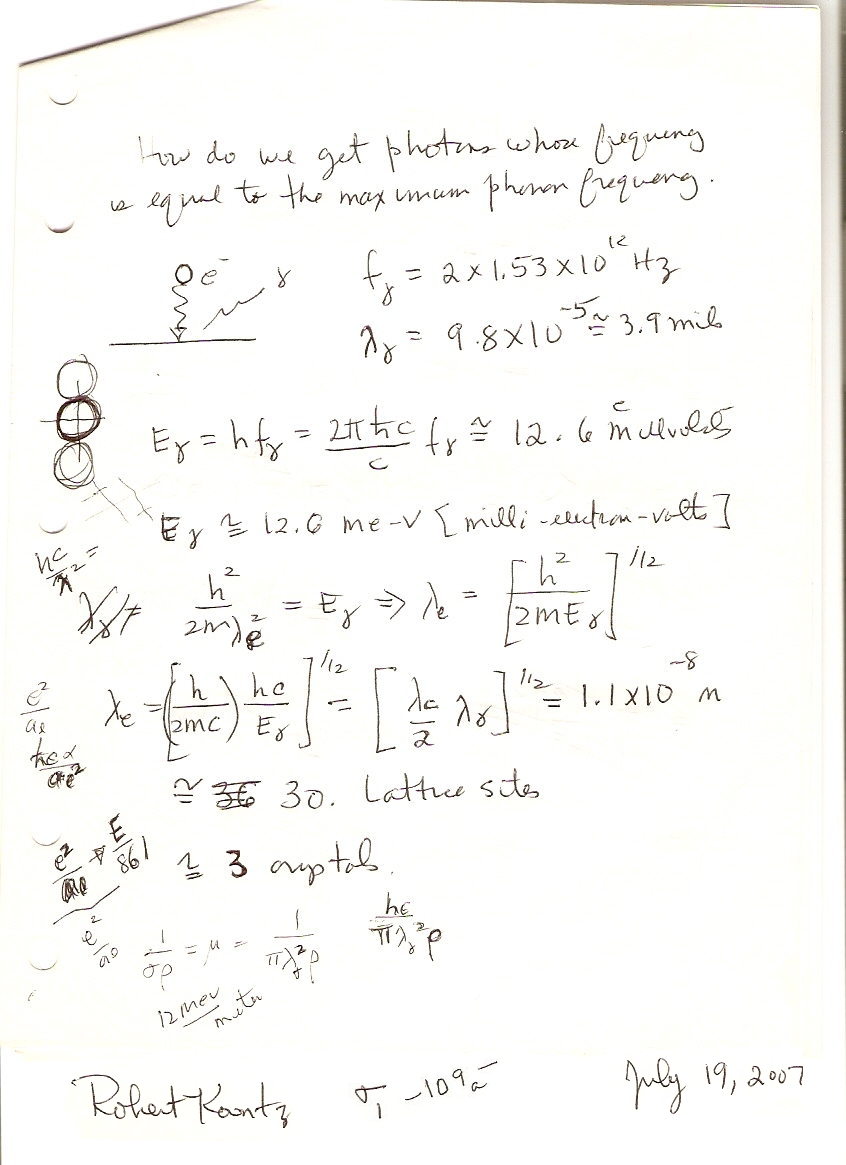 How do we get photons whose frequency
is equal to the maximum phonon frequency.
e⁻ γ
f_γ = 2 × 1.53 × 10¹² Hz
λ_γ = 9.8 × 10⁻⁵ ≅ 3.9 mils
E_γ = h f_γ = 2πħc/c f_γ ≅ 12.6 millivolts
E_γ ≅ 12.6 me-V [milli-electron-volts]
hc/λ² =
h²/2mλ_e² = E_γ ⇒ λ_e = [h²/2mE_γ]^1/2
λ_e = [(h/2mc) hc/E_γ]^1/2 = [λ_c/2 λ_γ]^1/2 = 1.1×10⁻⁸ m
≅ 30. Lattice sites
e²/a_e
ħcα
≅ 3 crystals.
E/861
e²/a₀
1/σρ = μ = 1/πλ_γ²ρ
hc/πλ_γ²ρ
12 mev/meter
Robert Koontz
July 19, 2007